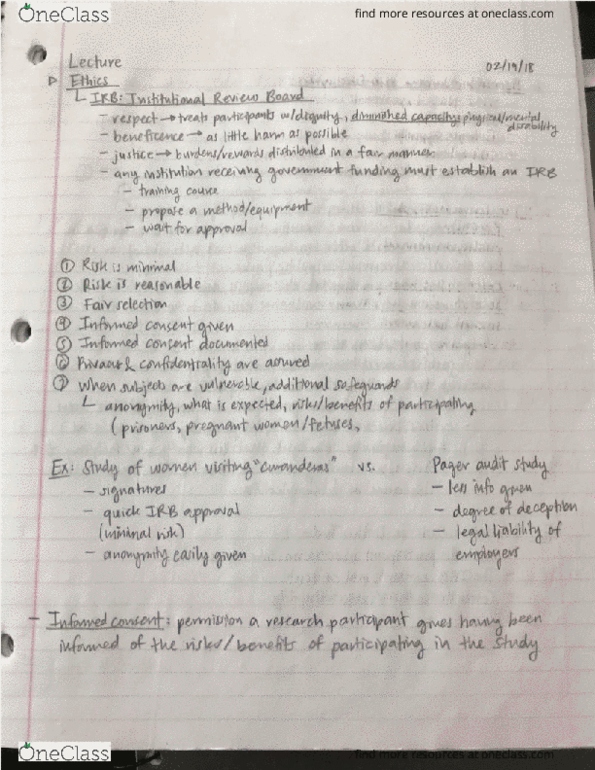 OneClass
find more resources at oneclass.com
Lecture
02/19/18
▷ Ethics
└ IRB: Institutional Review Board
- respect → treats participants w/dignity, diminished capacity: physical/mental disability
- beneficence → as little harm as possible
- justice → burdens/rewards distributed in a fair manner
- any institution receiving government funding must establish an IRB
- training course
- propose a method/equipment
- wait for approval
① Risk is minimal
② Risk is reasonable
③ Fair selection
④ Informed consent given
⑤ Informed consent documented
⑥ Privacy & confidentiality are assured
⑦ When subjects are vulnerable, additional safeguards
└ anonymity, what is expected, risks/benefits of participating
(prisoners, pregnant women/fetuses,
Ex: Study of women visiting "curanderas" vs. Pager audit study
- signatures
- quick IRB approval
(minimal risk)
- anonymity easily given
- less info given
- degree of deception
- legal liability of
employers
- Informed consent: permission a research participant gives having been
informed of the risks/benefits of participating in the study
OneClass
find more resources at oneclass.com